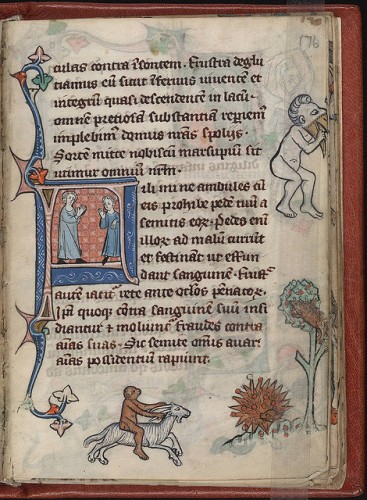 culas contra ĩsontem. Frustra deglu
tiamus eũ sicut ĩfernus viventẽ et
integrũ quasi descendentẽ in lacũ.
omnẽ pretiosã substantiã repiem̃
implebim̃ domus nr̃as spolijs.
Sortẽ mitte nobiscũ marsupiũ sit
unũ omniũ nr̃m.
Fili mi ne ambules cũ
eis prohibe pedẽ tuũ a
semitis eoꝝ. Pedes eni᷑
illoꝝ ad malũ currũt
et festinãt ut effun
dant sanguinẽ. Frust᷑
autẽ iacit᷑ rete ante oc̃los pẽnatoꝝ.
Ip̃i quoqꝫ cõtra sanguinẽ suũ insi
diantur ⁊ moliunt᷑ fraudes contra
aĩas suas. Sic semite om̃is avari
aĩas possidentiũ rapiunt.
176